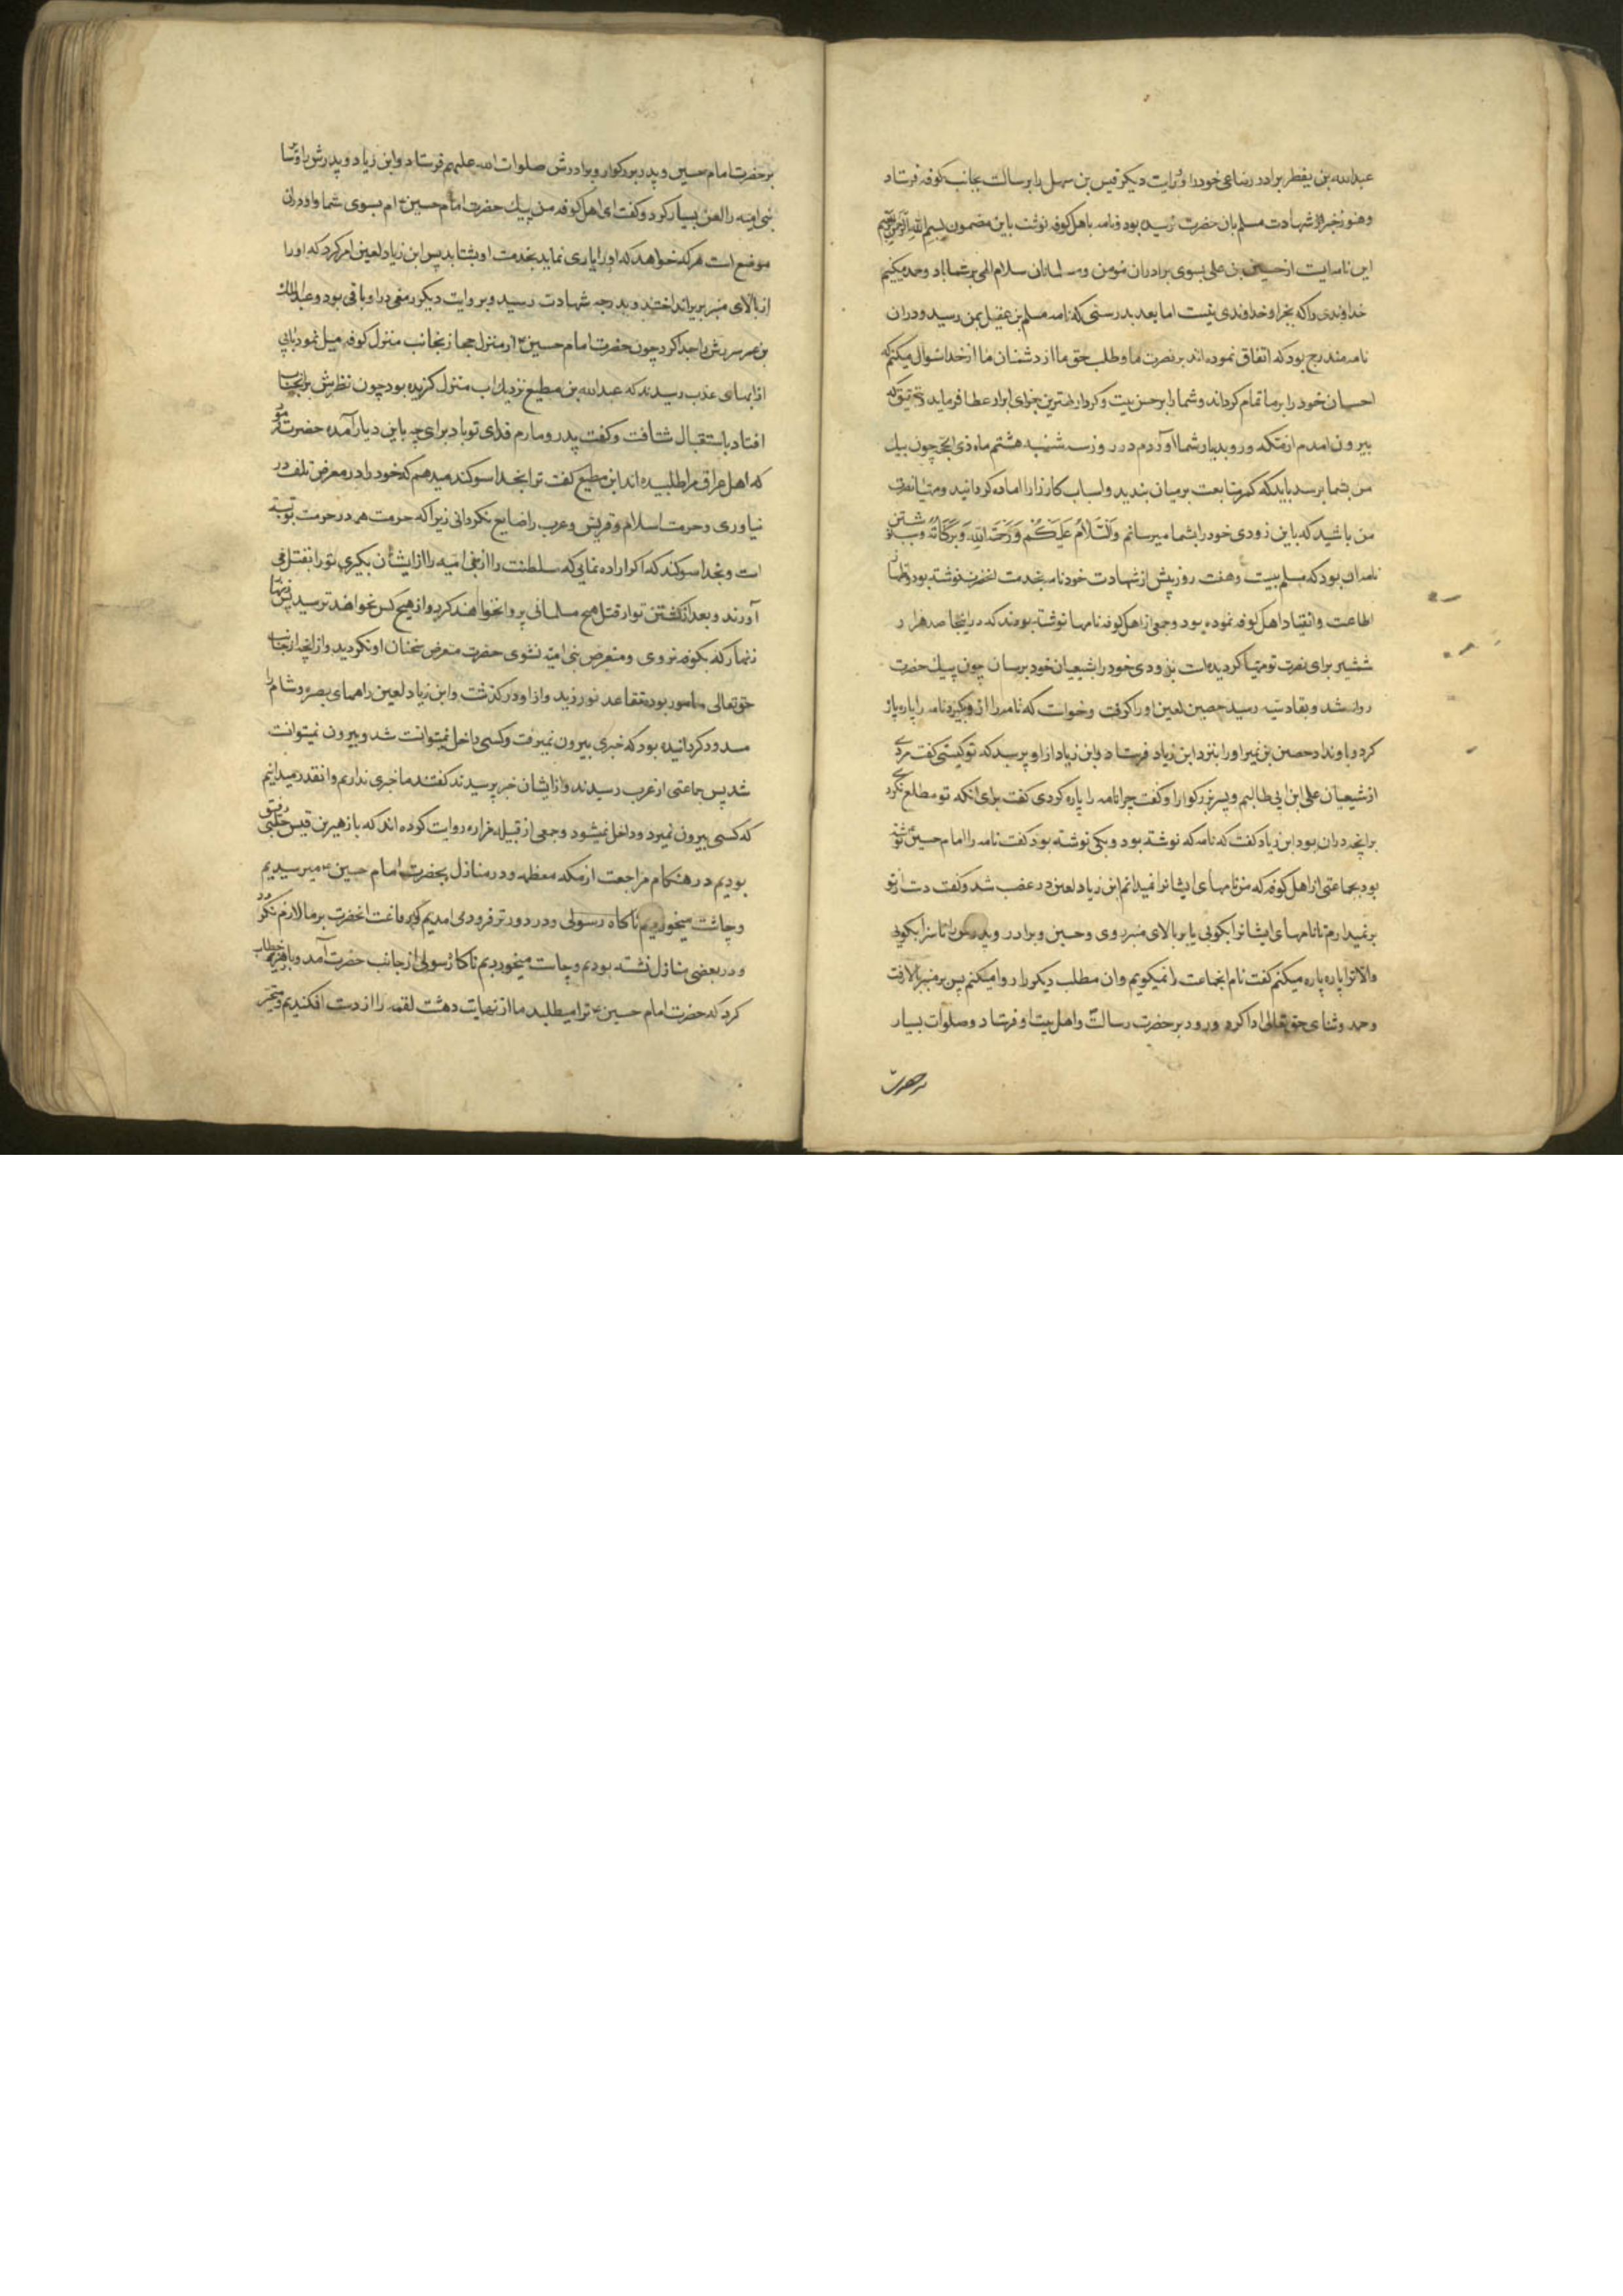 عبدالله بن یقطر برادر رضاعی خود را و روایت دیکر قیس بن مسهل را برسالت بجانب کوفه فرستاد
وهنوز خبر شهادت مسلم بان حضرت نرسیده بود ونامه باهل کوفه نوشت باین مضمون بسم الله الرحمن الرحیم
این نامه ایست از حسین بن علی بسوی برادران مؤمن و مسلمانان سلام الهی بر شما باد وحمد میکنیم
خداوندی را که بجز او خداوندی نیست اما بعد بدرستی که نامه مسلم بن عقیل بمن رسید ودران
نامه مندرج بود که اتفاق نموده اند بر نصرت ما وطلب حق ما از دشنان ما از خدا سئوال میکنم که
احسان خود را بر ما تمام کرداند وشما را بر حسن نیت وکردار بهترین جزای ابرار عطا فرماید
بیرون امدم از مکه ورو بدیار شما اوردم در روز سه شنبه هشتم ماه ذی الحجه چون پیک
من بشما برسد باید که کمر متابعت بر میان بندید واسباب کارزار را اماده کردانید ومهیا نصرت
من باشید که باین زودی خود را بشما میرسانم وَالسَّلامُ عَلَیکُم وَرَحمَةُ اللهِ وَبَرَکاتُهُ وسبب نوشتن
نامه ان بود که مسلم بیست وهفت روز پیش از شهادت خود نامه بخدمت انحضرت نوشته بود واظهار
اطاعت وانقیاد اهل کوفه نموده بود وجمعی از اهل کوفه نامها نوشته بودند که در اینجا صد هزار
شمشیر برای نصرت تو مهیا کردیده است بزودی خود را بشیعیان خود برسان چون پیک حضرت
روانه شد وبقادسیه رسید حصین لعین او را کرفت وخواست که نامه را از او بکیرد نامه را پاره پاره
کرد وباو نداد حصین بن نمیر او را بنزد ابن زیاد فرستاد وابن زیاد از او پرسید که تو کیستی کفت مردی
از شیعیان علی ابن ابی طالبم وپسر بزرکوار او کفت چرا نامه را پاره کردی کفت برای انکه تو مطلع نکردی
برانچه دران بود ابن زیاد کفت که نامه که نوشته بود وبکی نوشته بود کفت نامه را امام حسین نوشته
بود بجماعتی از اهل کوفه که من نامهای ایشانرا نمیدانم ابن زیاد لعین در غضب شد وکفت دست از تو
برنمیدارم تا نامهای ایشانرا بکوئی یا بر بالای منبر روی وحسین وبرادر وپدرش را ناسزا بکوئی
والا ترا پاره پاره میکنم کفت نام انجماعت را نمیکویم وان مطلب دیکر را روا میکنم پس بر منبر بالا رفت
وحمد وثنای حق تعالی ادا کرد ودرود بر حضرت رسالت واهل بیت او فرستاد وصلوات بسیار
بر حضرت
بر حضرت امام حسین وپدر بزرکوار وبرادرش صلوات الله علیهم فرستاد وابن زیاد وپدرش
بنی امیه را لعن بسیار کرد وکفت ای اهل کوفه من پیک حضرت امام حسین ام بسوی شما واو در فلان
موضع است هر که خواهد که او را یاری نماید بخدمت او بشتابد پس ابن زیاد لعین امر کرد که او را
از بالای منبر بزیر انداختند وبدرجه شهادت رسید وبروایت دیکر رمقی در او باقی بود وعبدالملک
بن عمر سرش را جدا کرد چون حضرت امام حسین از منزل حجاز بجانب منزل کوفه میل نمود بابی
از ابهای عذب رسیدند که عبدالله بن مطیع نزدیک اب منزل کزیده بود چون نظرش بر انجناب
افتاد باستقبال شتافت وکفت پدر ومادرم فدای تو باد برای چه باین دیار آمده حضرت فرمود
که اهل عراق مرا طلبیده اند ابن مطیع کفت ترا بخدا سوکند میدهم که خود را در معرض تلف در
نیاوری وحرمت اسلام وقریش وعرب را ضایع نکردانی زیرا که حرمت همه در حرمت تو بسته
است وبخدا سوکند که اکر اراده نمایی که سلطنت را از بنی امیه را از ایشان بکیری تو را بقتل می
آورند وبعد از کشتن تو از قتل هیچ مسلمانی پروا نخواهند کرد واز هیچ کس نخواهند ترسید پس زنهار
زنهار که بکوفه نروی ومتعرض بنی امیه نشوی حضرت متعرض سخنان او نکردید واز انچه از جناب
حق تعالی مامور بود تقاعد نورزید واز او در کذشت وابن زیاد لعین راههای بصره وشام را
مسدود کردانیده بود که خبری بیرون نمیرفت وکسی داخل نمیتوانست شد وبیرون نمیتوانست
شد پس جماعتی از عرب رسیدند واز ایشان خبر پرسیدند کفتند ما خبری نداریم وانقدر میدانیم
که کسی بیرون نمیرود وداخل نمیشود وجمعی از قبیله فزاره روایت کرده اند که با زهیر بن قین بجلی رفیق
بودیم در هنکام مراجعت از مکه معظمه ودر منازل بحضرت امام حسین میرسیدیم
وچاشت میخوردیم ناکاه رسولی ودر دورتر فرود می امدیم که رفاقت انحضرت بر ما لازم نکردد
ودر بعضی منازل نشسته بودیم وچاشت میخوردیم ناکاه رسولی از جانب حضرت آمد وبا زهیر خطاب
کرد که حضرت امام حسین ترا میطلبد ما از نهایت دهشت لقمه را از دست افکندیم ومتحیر